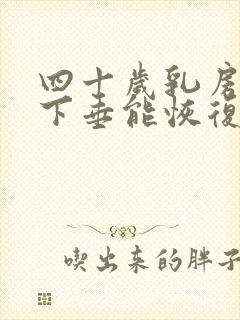 四十歲乳房
下垂能恢復
喫出来的胖子